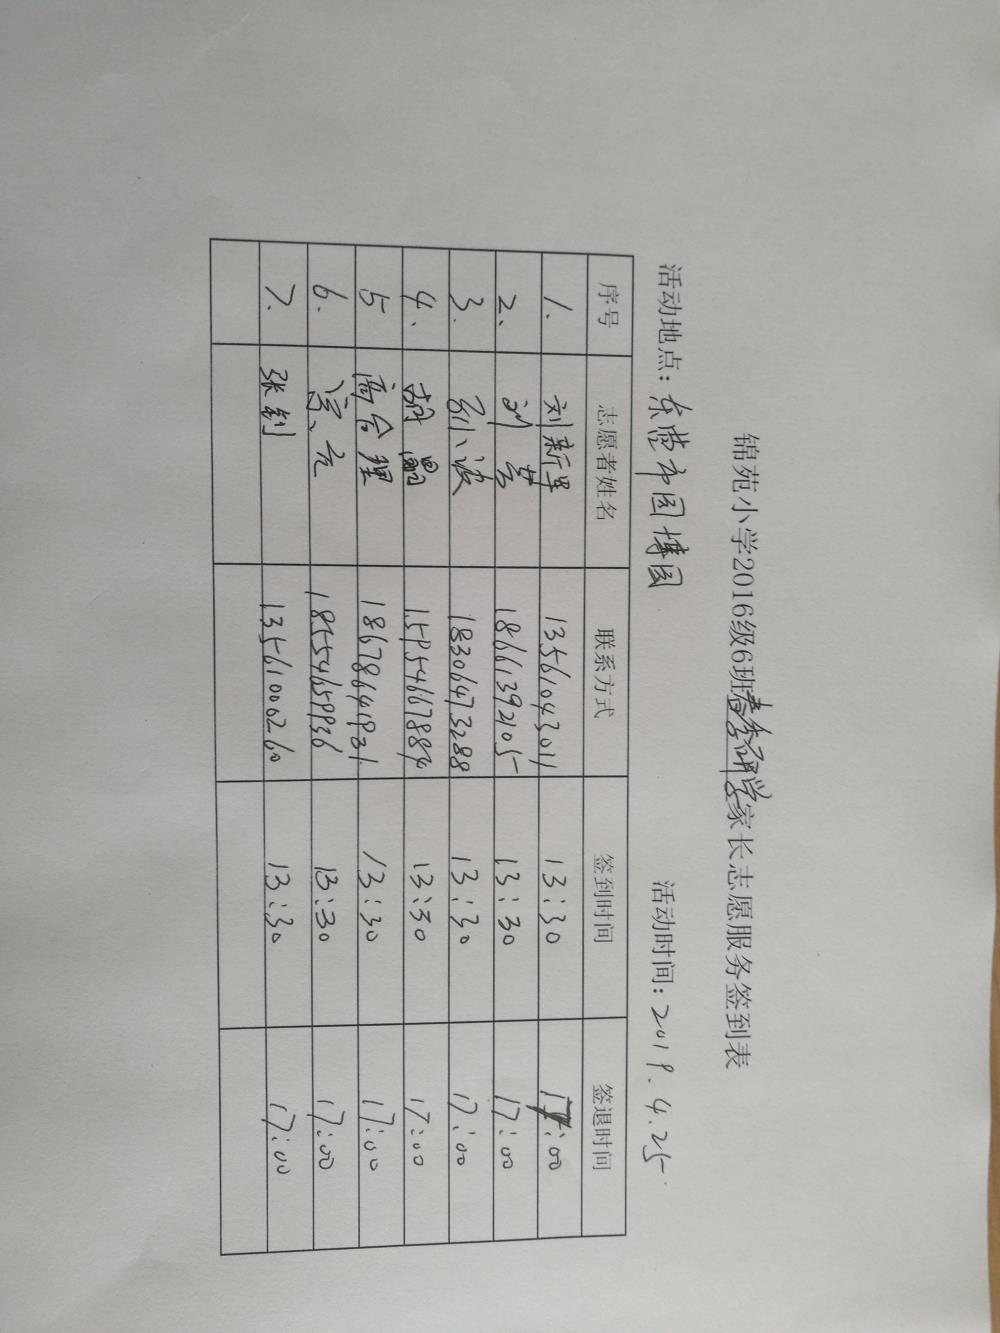 锦苑小学2016级6班春季研学家长志愿服务签到表
活动地点：东营市园博园 活动时间：2019.4.25
序号 志愿者姓名 联系方式 签到时间 签退时间
1. 刘新军 13561043011 13:30 17:00
2、 刘芳 18661392105 13:30 17:00
3. 孙波 18306473288 13:30 17:00
4、 胡晶 15954667884 13:30 17:00
5 高合理 18678641931 13:30 17:00
6. 18554659936 13:30 17:00
7. 张钊 13561000260 13:30 17:00